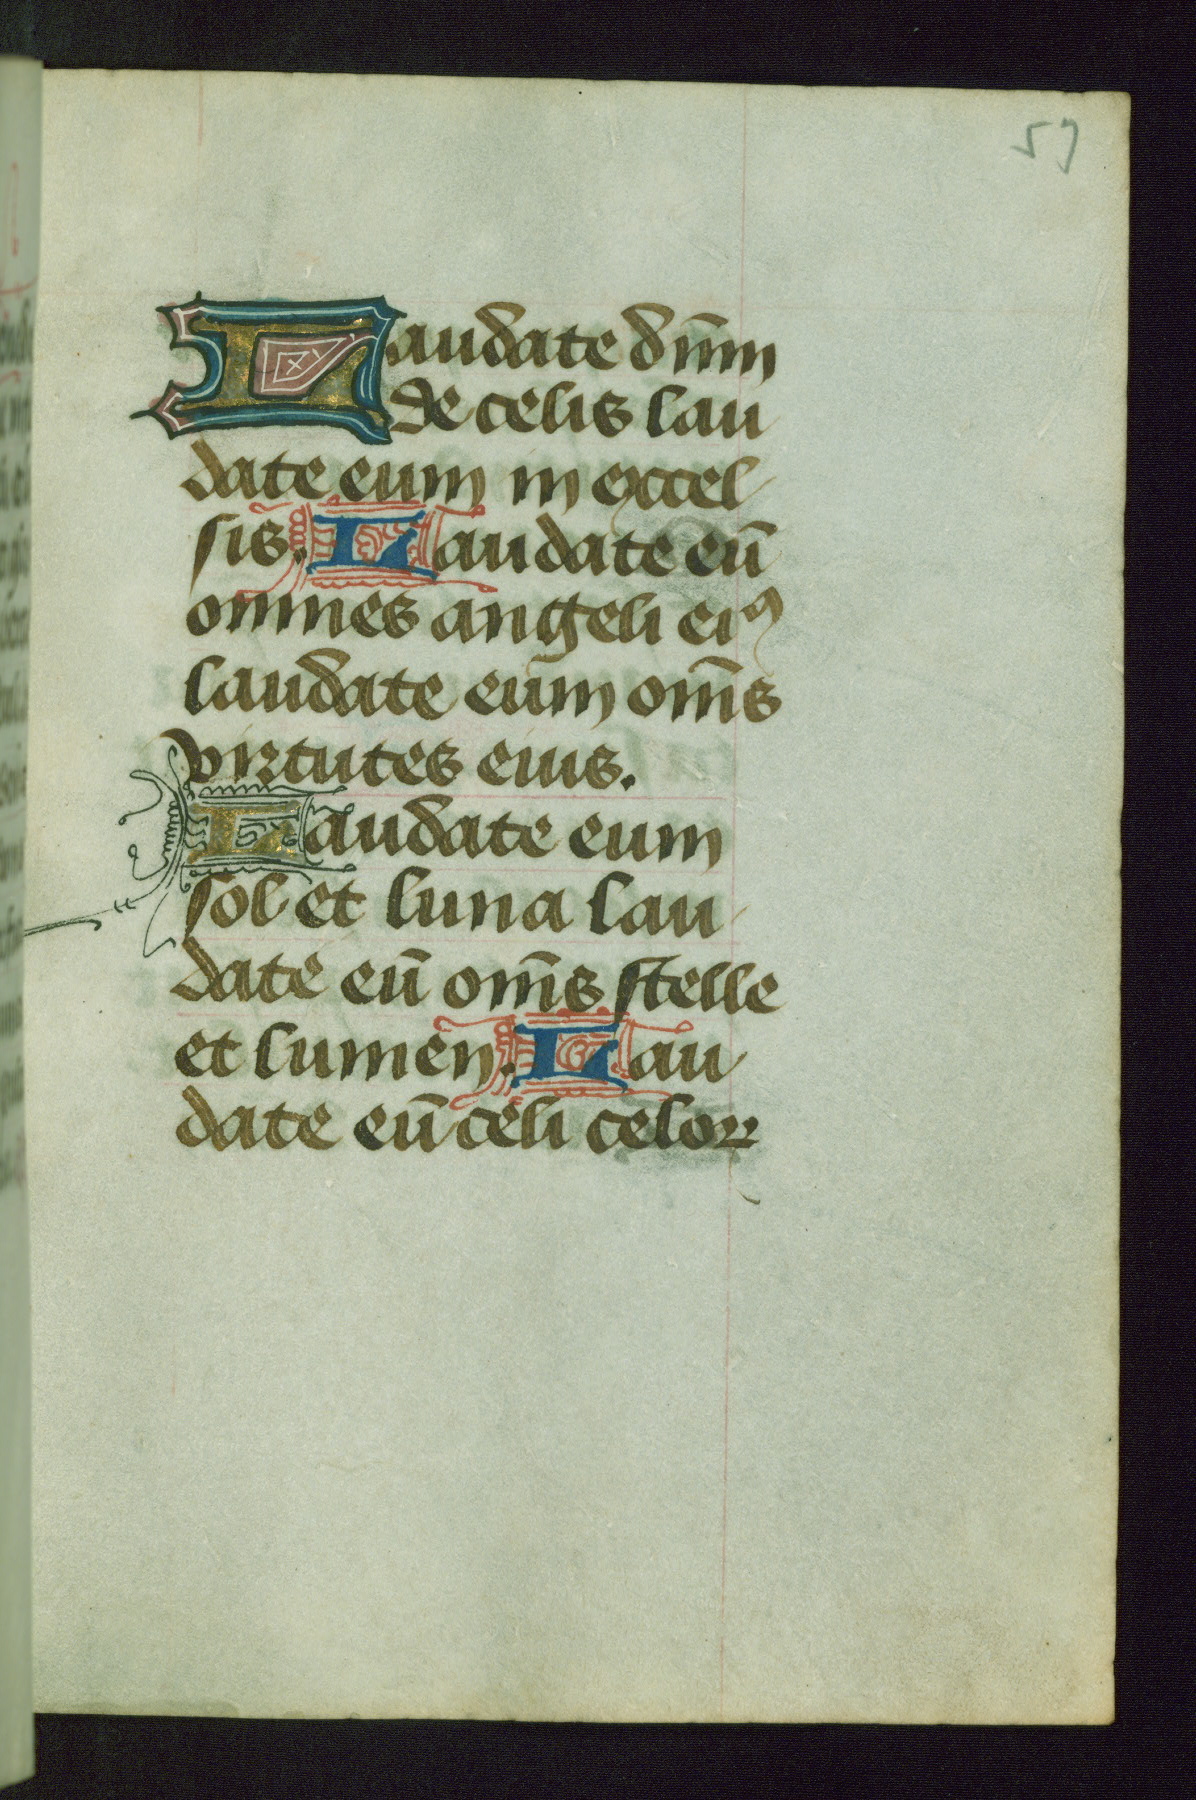 59
Laudate dn̄m
de celis lau
date eum in excel
sis. Laudate eū
omnes angeli eiꝰ
laudate eum om̄s
virtutes eius.
Laudate eum
sol et luna lau
date eū om̄s stelle
et lumen. Lau
date eū celi celoꝝ